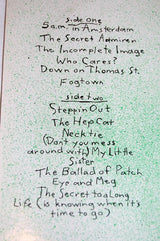 side one
5 a.m. in Amsterdam
The Secret Admirer
The Incomplete Image
Who Cares?
Down on Thomas St.
Fogtown
side two
Steppin Out
The Hep Cat
Necktie
(Don't you mess
around with) My Little
Sister
The Ballad of Patch
Eye and Meg
The Secret to a Long
Life (is knowing when it's
time to go)